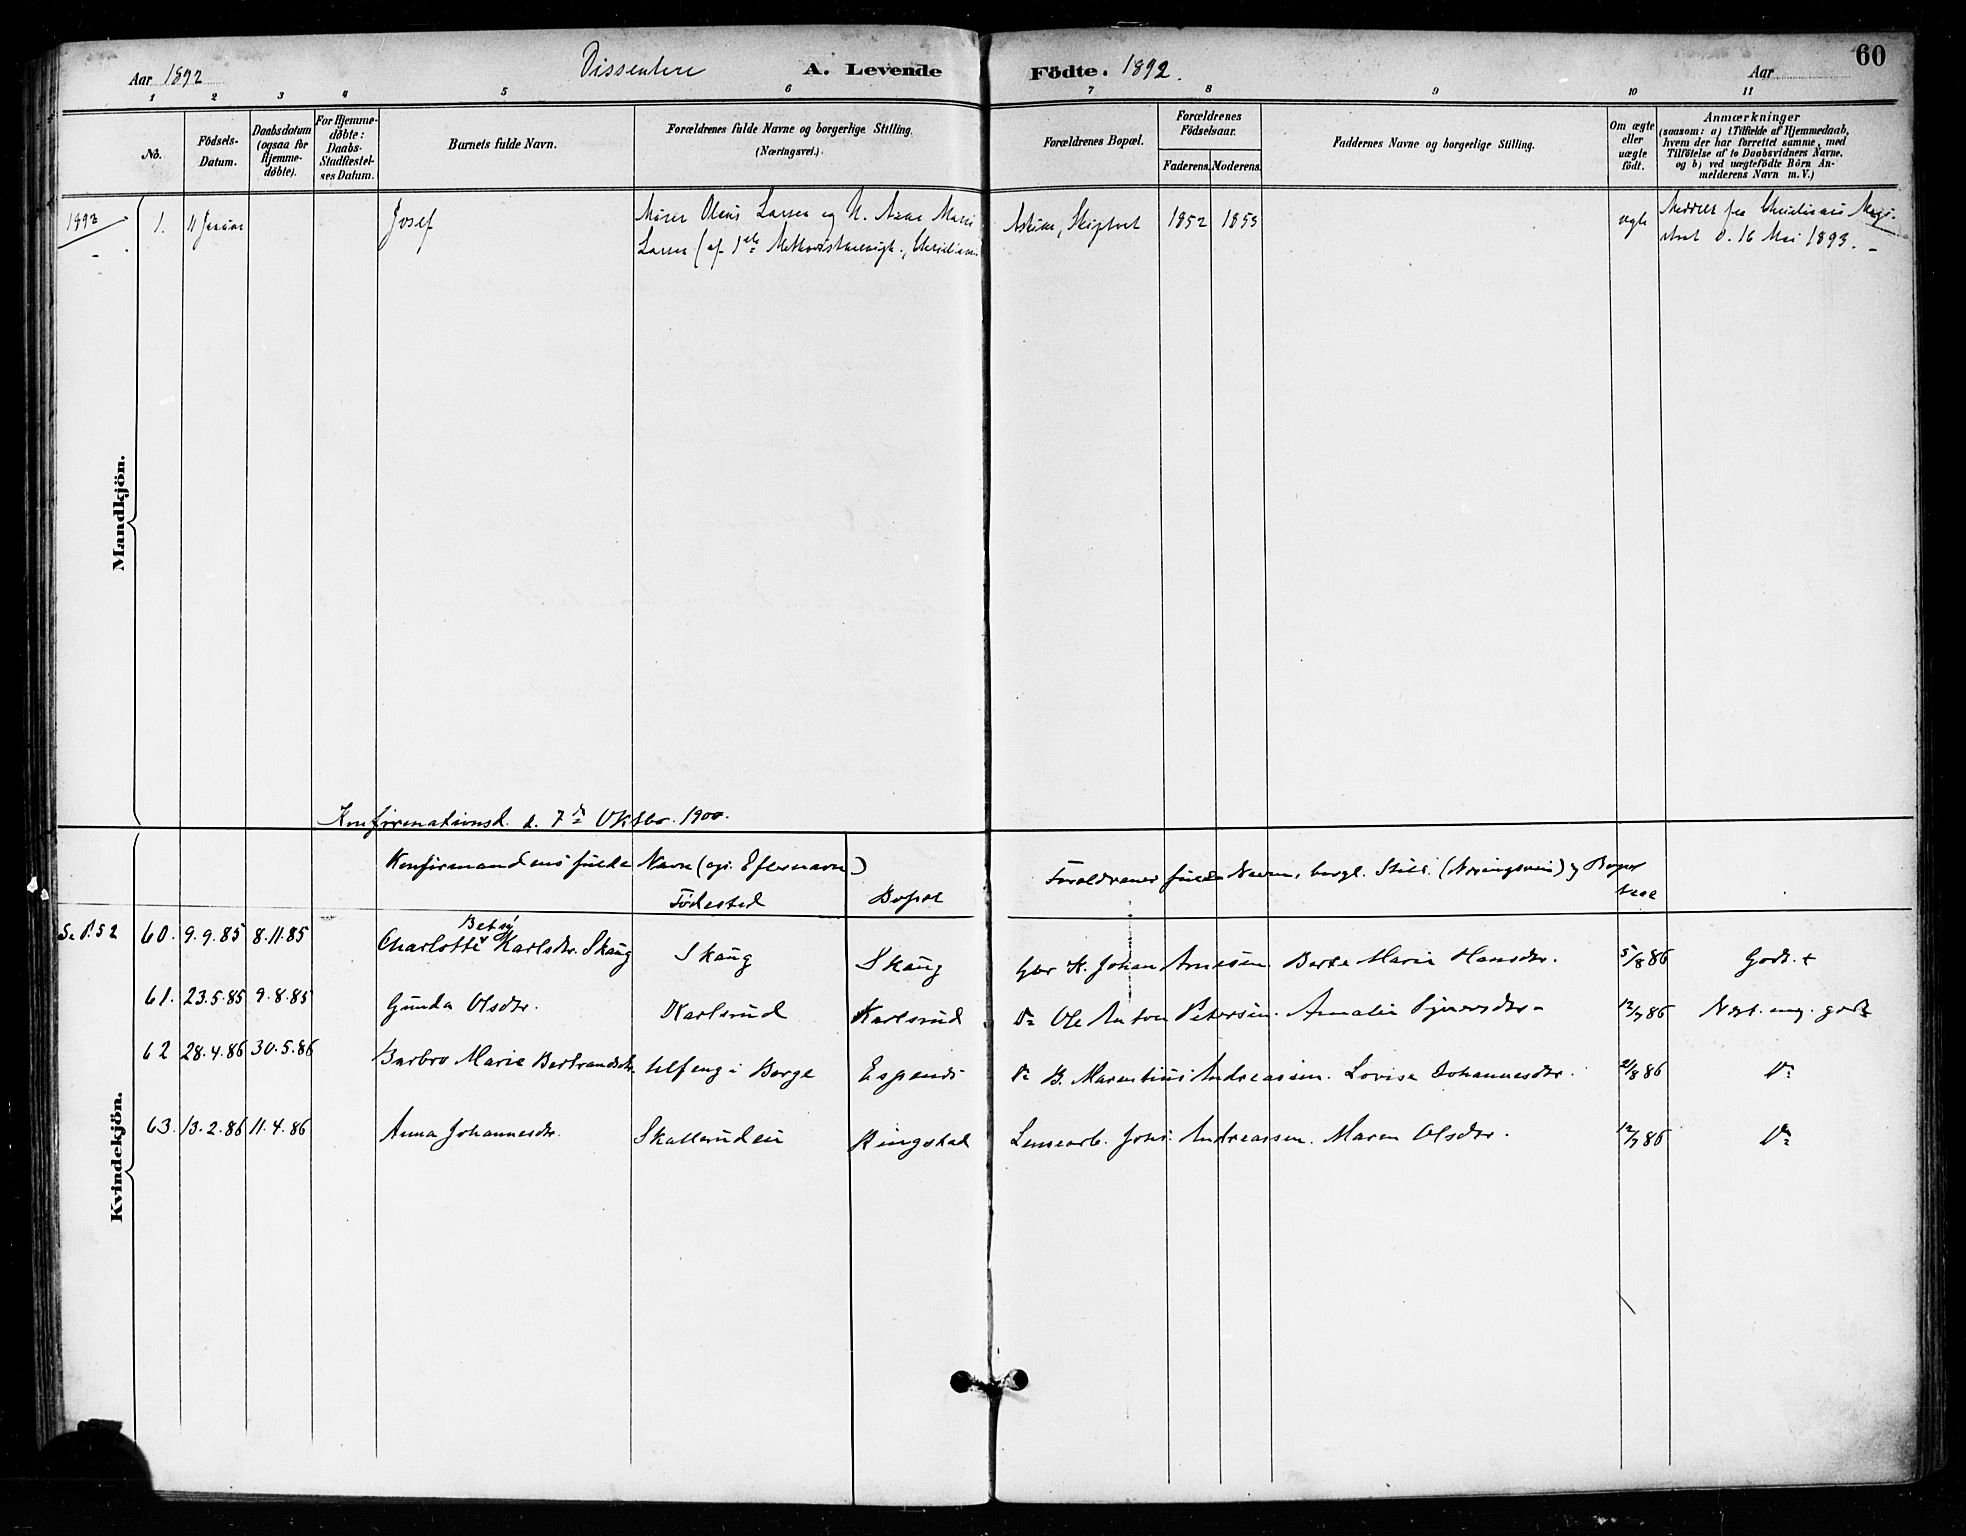 Aar 1892
Dissentere
A. Levende
Födte. 1892.
Aar
60
1 2 3 4 5 6 7 8 9 10 11
No.
Födsels-
Datum.
Daabsdatum
(ogsaa for
Hjemme-
døbte).
For Hjemme-
døbte:
Daabs-
Stadfæstel-
ses Datum.
Barnets fulde Navn.
Forældrenes fulde Navne og borgerlige Stilling.
(Næringsvei.)
Forældrenes Bopæl.
Forældrenes
Födselsaar.
Faderens. Moderens.
Faddernes Navne og borgerlige Stilling.
Om ægte
eller
uægte
født.
Anmærkninger
(saasom: a) i Tilfælde af Hjemmedaab,
hvem der har forrettet samme, med
Tilföielse af to Daabsvidners Navne,
og b) ved uægtefödte Börn An-
melderens Navn m. V.)
1893 1. 11 Januar Josef Murer Olaus Larsen og H. Anne Marie Askim, Skiptvet 1852 1853 ægte Meddelt fra Christiania Magi-
Larsen (af 1ste Methodistmenigh., Christiania strat d. 16 Mai 1893. -
Mandkjön.
Konfirmationsd. d. 7de Oktbr. 1900.
Konfirmandens fulde Navn (ogs. Efternavn)
Födested Bopæl
Foraldrenes fulde Navn, borgl. Still. (Næringsvei) og Bopæl
Vacc
Se P. 52 60. 9.9.85 8.11.85 Charlotte Betsy Karlsdtr. Skaug Skaug Skaug Gbr K. Johan Arnesen. Berte Marie Hansdtr. 5/8 86 Godt. +
61. 23.5.85 9.8.85 Gunda Olsdtr. Karlsrud Karlsrud Do Ole Anton Petersen. Amalie 12/7 86 Næst. mg. godt
62 28.4.86 30.5.86 Barbro Marie Bertrandsdtr. Ulfeng i Borge Espenes Do B. Marentius Andreassen. Lovise Johannesdtr. 2/8 86 Do
63. 13.2.86 11.4.86 Anna Johannesdtr. Skallerudeie Ringstad Leiearb. Johs. Andreassen. Maren Olsdtr. 12/7 86 Do
Kvindekjön.